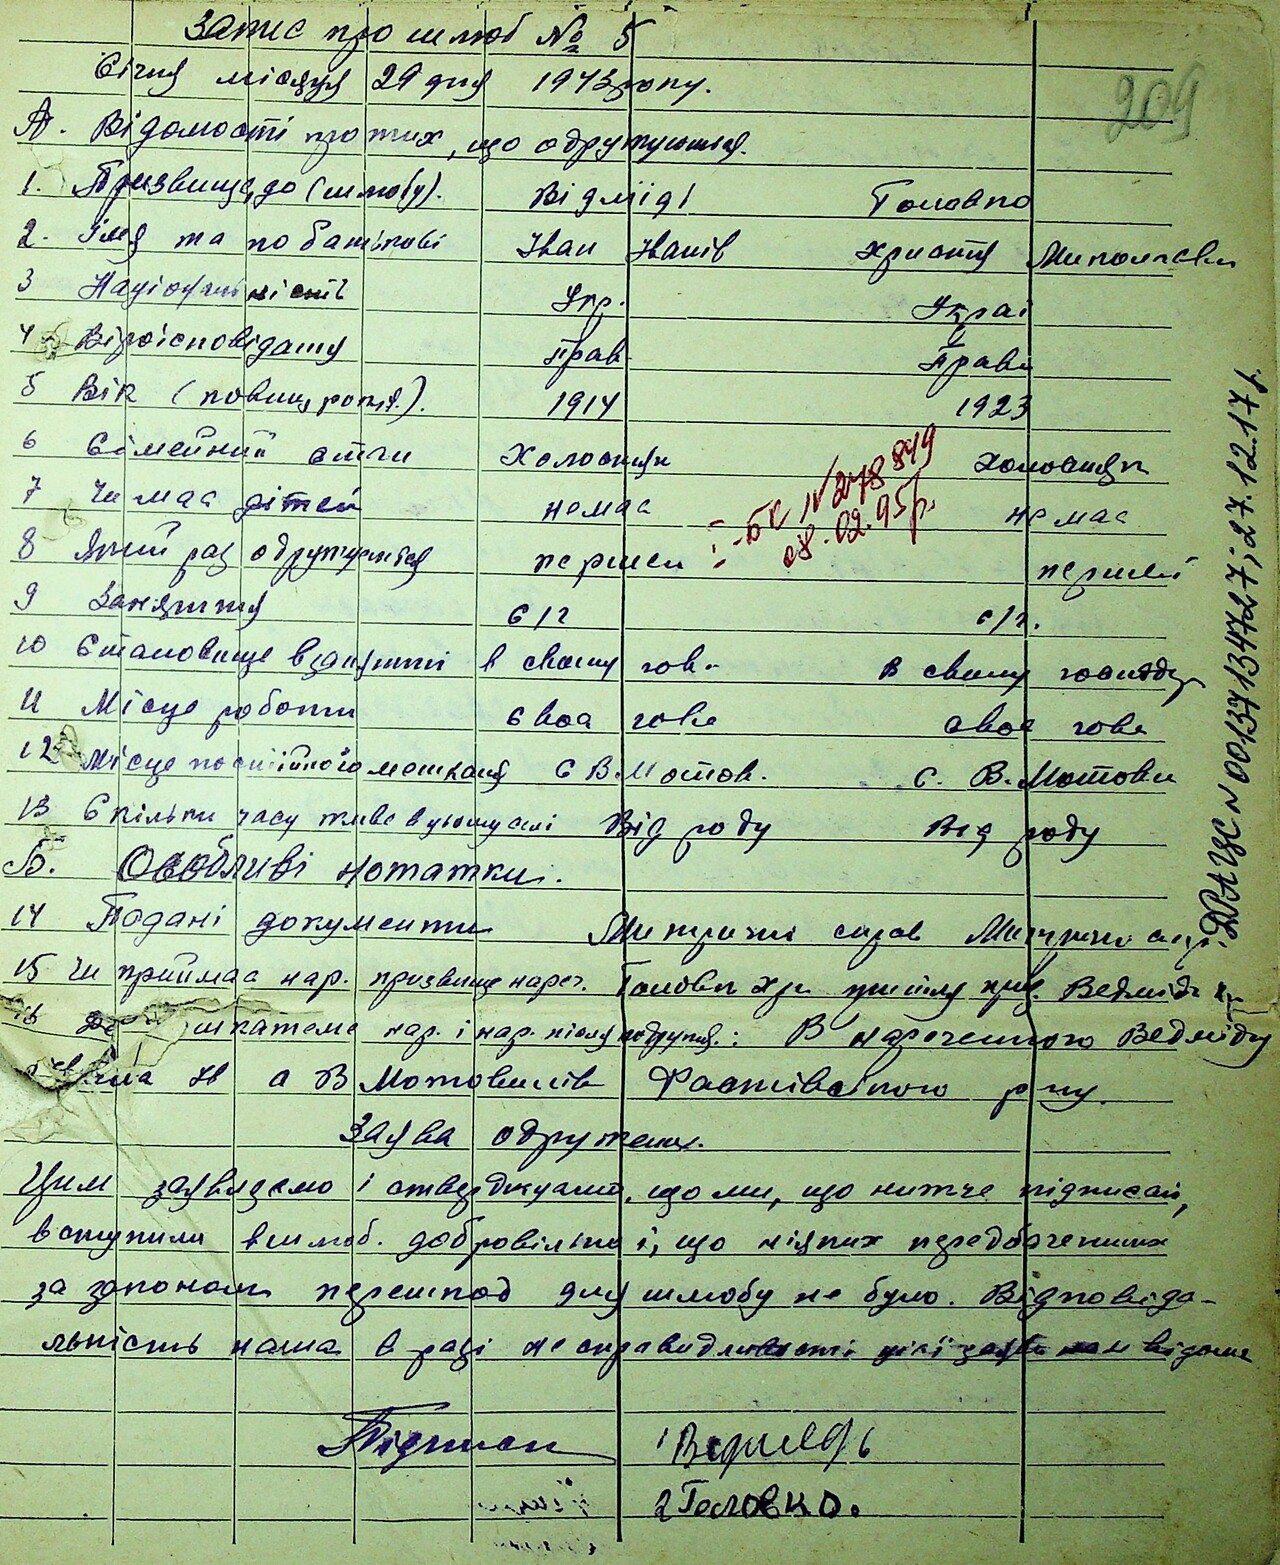 Запис про шлюб № 5
Січня місяця 29 дня 1943 року.
209
А. Відомості про тих, що одружуються.
1. Призвище, до (шлюбу). Відмідь Головко
2. Імя та по батькові Іван Іванів Христя Миколаєвн
3 Національність Укр. Украї
4 Віроісповідання Прав Прав
5 Вік (повних років.). 1914 1923
6 Сімейний стан Холостяк холостяк
7 Чи має дітей немає немає
8 Який раз одружується перший перший
9 Заняття с/г с/г.
10 Становище в занятті в свому госп. в свому господ
11 Місце роботи своє госп своє госп
12 Місце постійного мешкання с В.Мотов. с. В.Мотови
13 Скільки часу живе в цьому селі Від роду Від роду
Б. Особливі нотатки.
14 Подані документи Метричні справ Метричні
15 Чи приймає нар. призвище нареч. Головк Хр прийма Ведмідь
16 мкатеме нар. і нар. після одруж.: В нареченого Ведмідя
Івана В Мотовилів Фастівського р-ну.
Заява одружених.
Цим заявляємо і стверджуємо, що ми, що нижче підписані,
вступили в шлюб. добровільно і, що ніяких передбачених
за законом перешкод для шлюбу не було. Відповіда-
льність наша в разі несправедливості цієї заяви нам відома
Підписи 1 Ведмедь
2 Головко.
БК N 278849
08.02.95р.
ДРАЦС N 00137134727; 27.12.17р.